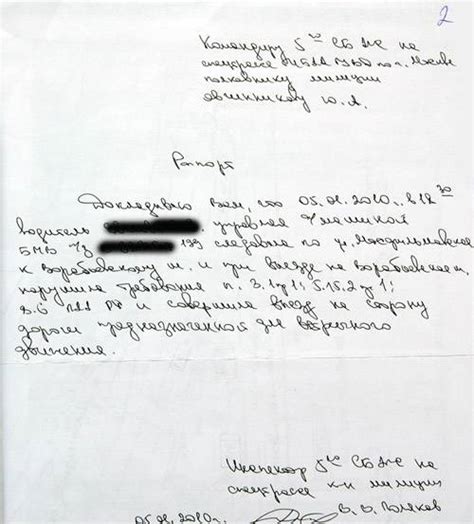 2
Командиру 5го СБ ДПС на
спецтрассе ГИБДД УВД по г. Москве
полковнику милиции
Овчинникову Ю.А.
Рапорт
Докладываю Вам, что 05.01.2010г. в 12 30
водитель управляя а/машиной
БМВ г/з 199 следовала по ул. Мосфильмовская
к Воробьевскому ш. и при въезде на Воробьевское ш.
нарушила требования п. 3.1 5.15.2
8.6 ПДД РФ и совершила въезд на сторону
дороги предназначенной для встречного
движения.
Инспектор 5го СБ ДПС на
спецтрассе к-н милиции
05.01.2010г. В.В. Поляков